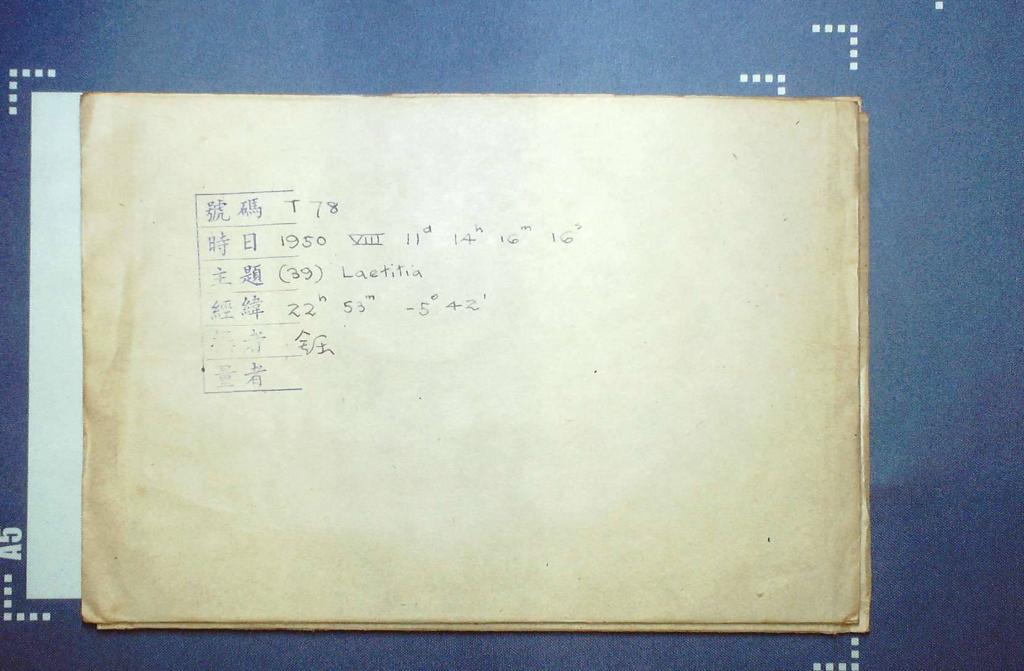 號碼 T 78
時日 1950 VIII 11d 14h 16m 16s
主題 (39) Laetitia
經緯 22h 53m -5° 42'
者
量者
A5